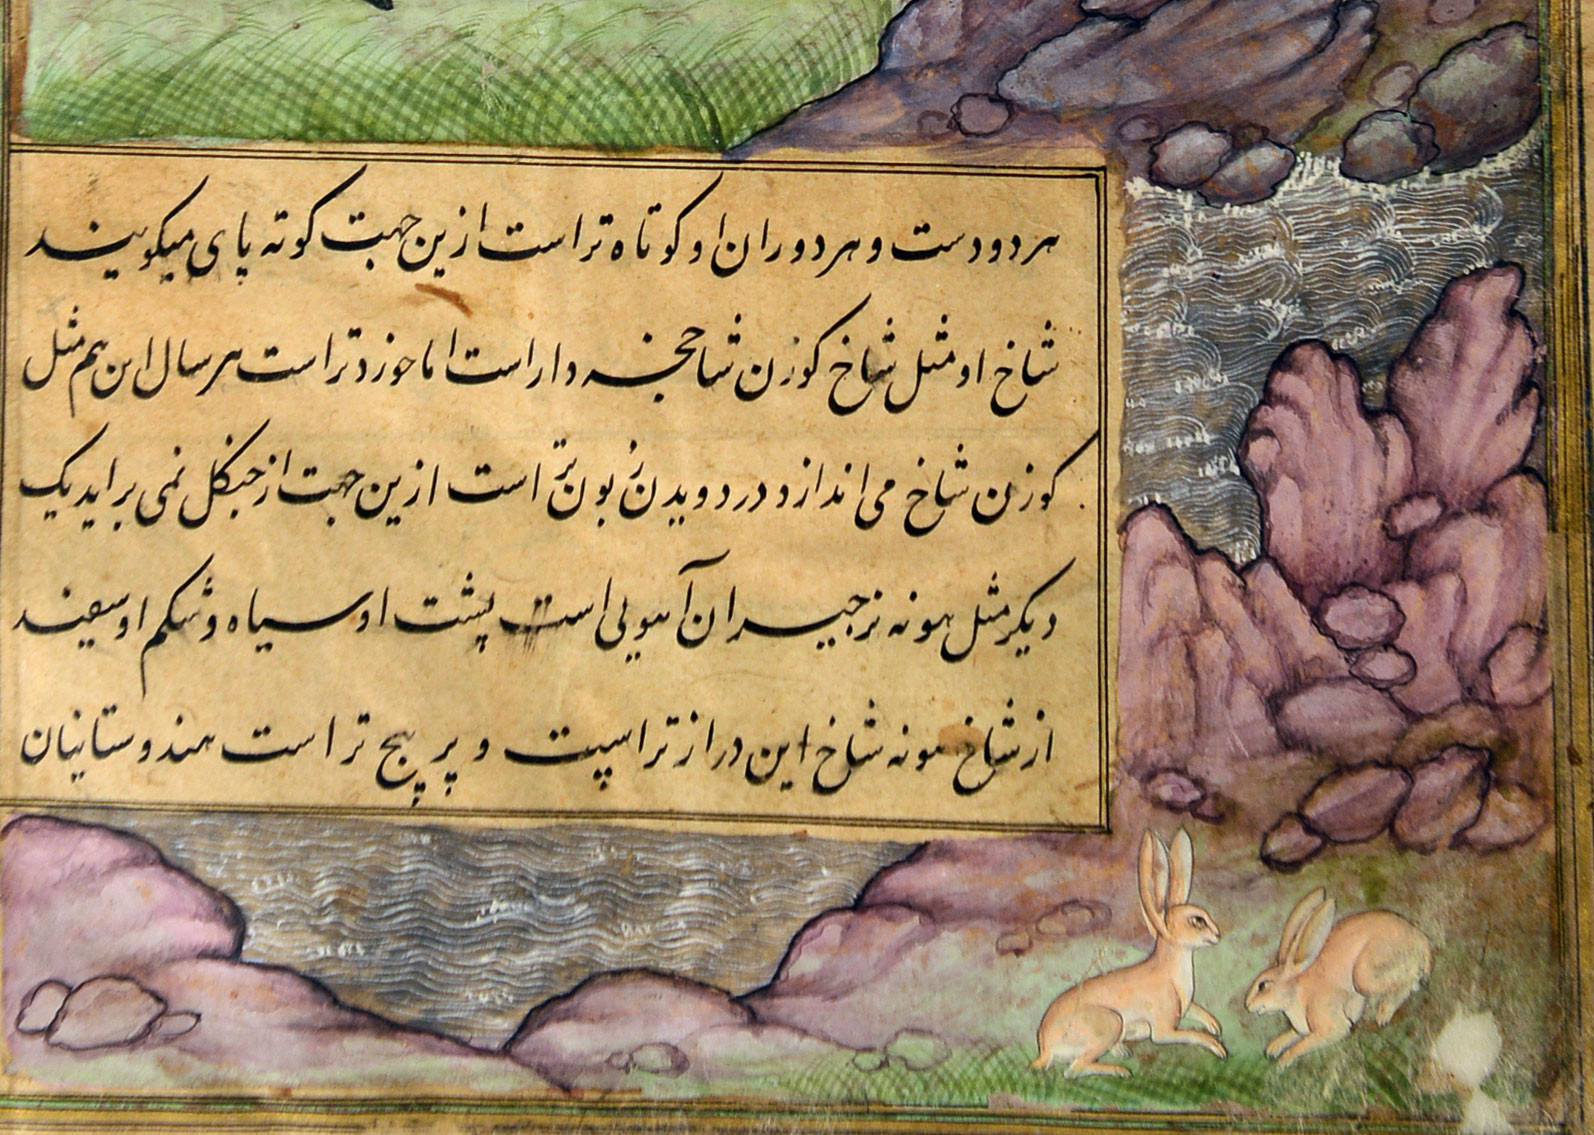 هر دو دست و هر دو ران او کوتاه تر است ازین جهت کوته پای میکویند
شاخ او مثل شاخ کوزن شاخچه دار است اما خوردتر است هر سال این هم مثل
کوزن شاخ می اندازد در دویدن زبون تر است ازین جهت از جنکل نمی براید یک
دیکر مثل هونه نر جیران آهویی است پشت او سیاه و شکم او سفید
از شاخ هونه شاخ این دراز تر است و پر پیچ تر است هندوستانیان